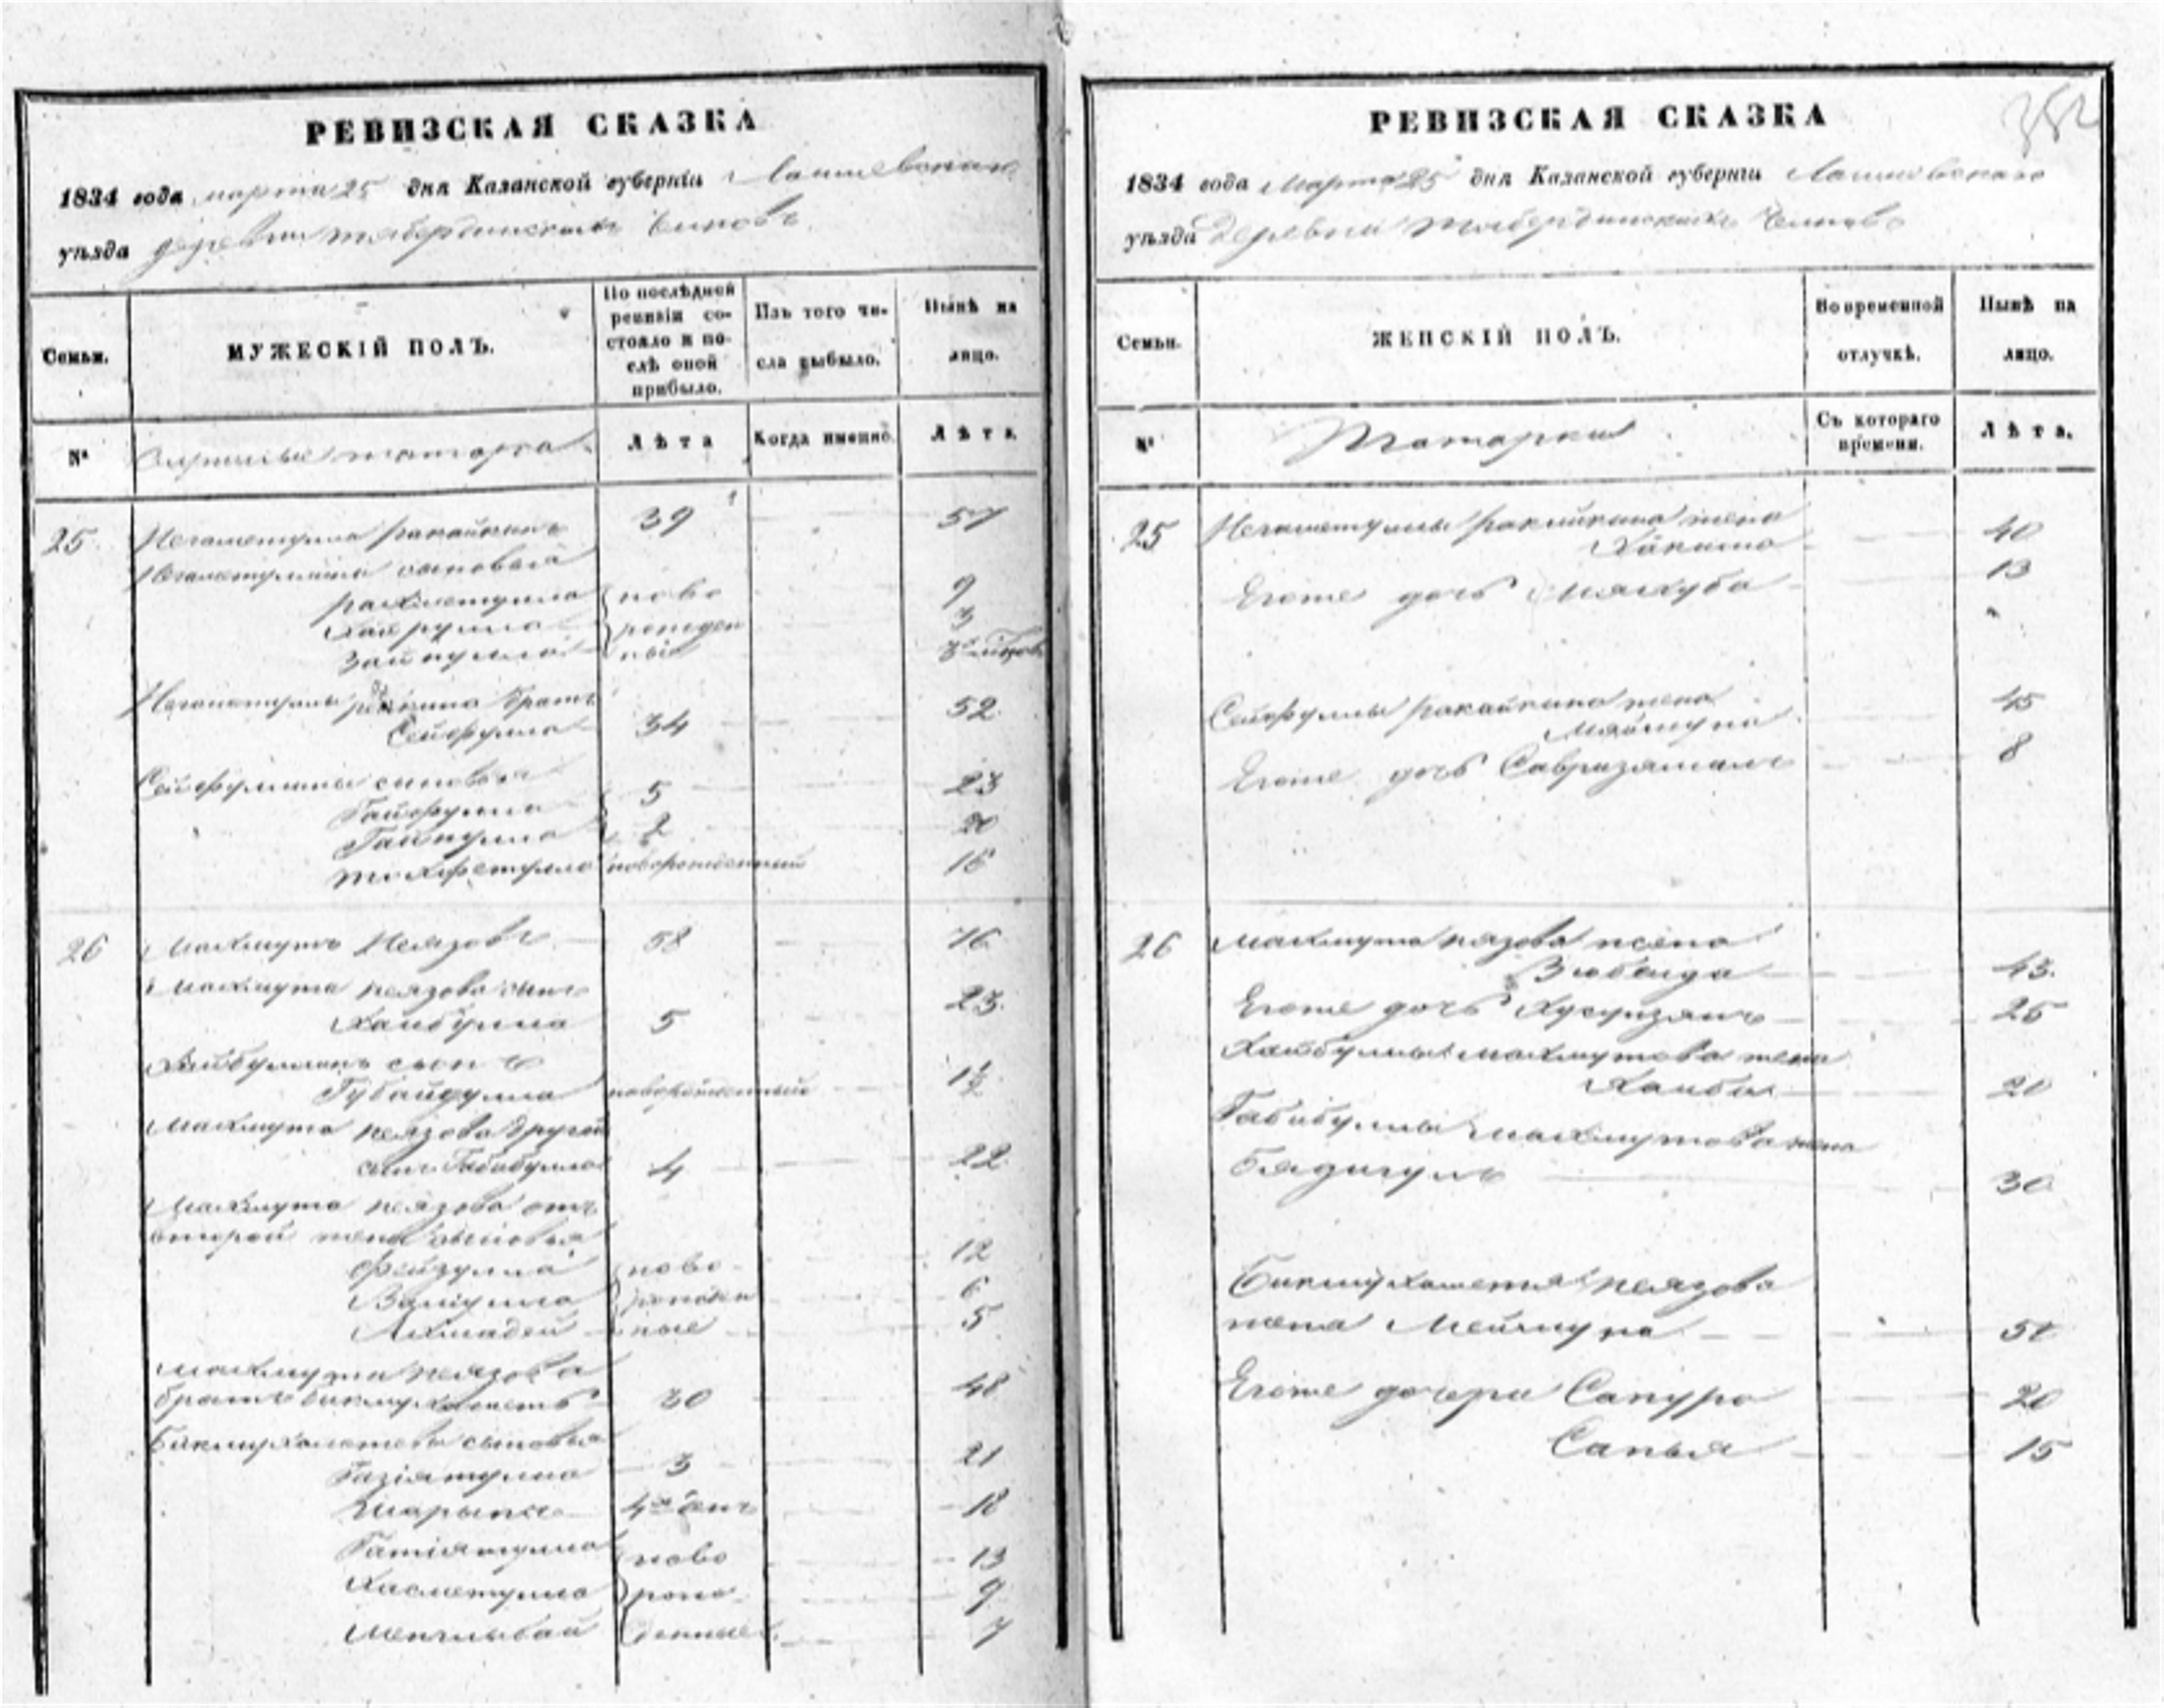 РЕВИЗСКАЯ СКАЗКА
1834 года марта 25 дня Казанской губерніи Лаишевскаго
уѣзда деревни тябердинскихъ Челновъ
Семьи.
МУЖЕСКІЙ ПОЛЪ.
По послѣдней ревизіи состояло и послѣ оной прибыло.
Изъ того числа выбыло.
Нынѣ на лицо.
№
татара
Лѣта
Когда именно.
Лѣта.
25 Негаметулла ракайкинъ 39 57
Негаметуллина сыновья
рахметулла ново 9
Хайрулла рожден 3
Зайнулла ныя
Негаметуллы братъ
Сейфулла 34 52
Сейфуллины сыновья
Гайфулла 5 23
Гайнулла 2 20
тохфетулла новорожденный 16
26 Махмутъ Неязовъ 58 76
Махмута неязова сынъ
Хайбулла 5 23
Хайбуллинъ сынъ
Губайдулла новорожденный 1½
Махмута неязова другой
сынъ Габибулла 4 22
Махмута неязова отъ
второй жены сыновья
Фейзулла ново 12
Валиулла рожден 6
Ахмадей ные 5
Махмута неязова
братъ бикмухаметъ 30 48
Бикмухаметевы сыновья
Газіятулла 3 21
Шарыпъ 18
Гатіятулла ново 13
Хисметулла рож 9
Менглыбай денные 7
РЕВИЗСКАЯ СКАЗКА
352
1834 года Марта 25 дня Казанской губерніи Лаишевскаго
уѣзда Деревни тябердинскихъ Челновъ
Семьи.
ЖЕНСКІЙ ПОЛЪ.
Во временной отлучкѣ.
Нынѣ на лицо.
№
Татарки
Съ котораго времени.
Лѣта.
25 Негаметуллы ракайкина жена
Хакима 40
Егоже дочь Мяхуба 13
Сейфуллы ракайкина жена
Маймуна 45
Егоже дочь Савризямалъ 8
26 Махмута неязова жена
Зюбаида 43
Егоже дочь Хусунзянъ 25
Хайбуллы Махмутова жена
Хаиба 20
Габибуллы Махмутова жена
Бядигуль 30
Бикмухаметя неязова
жена Меймуна 50
Егоже дочери Сапура 20
Сапья 15